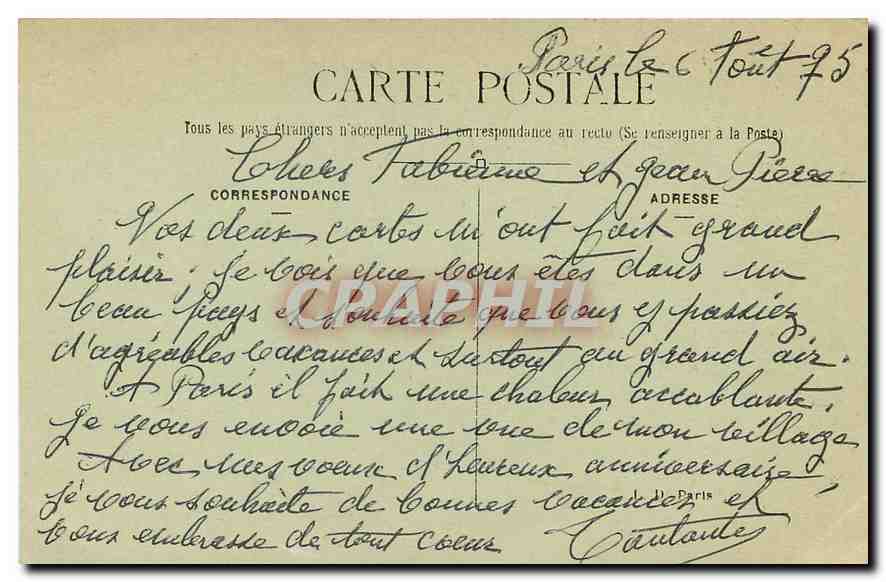 Paris le 6 Août 75
CARTE POSTALE
Tous les pays étrangers n'acceptent pas la correspondance au recto (Se renseigner à la Poste)
Chers Fabienne et Jean Pierre
CORRESPONDANCE ADRESSE
Vos deux cartes m'ont fait grand
plaisir. Je vois que vous êtes dans un
beau pays et souhaite que vous y passiez
CRAPHIL
d'agréables vacances et surtout au grand air.
A Paris il fait une chaleur accablante.
Je vous envoie une vue de mon village
Avec mes voeux d'heureux anniversaire,
je vous souhaite de bonnes vacances et
Paris
vous embrasse de tout coeur Tantante